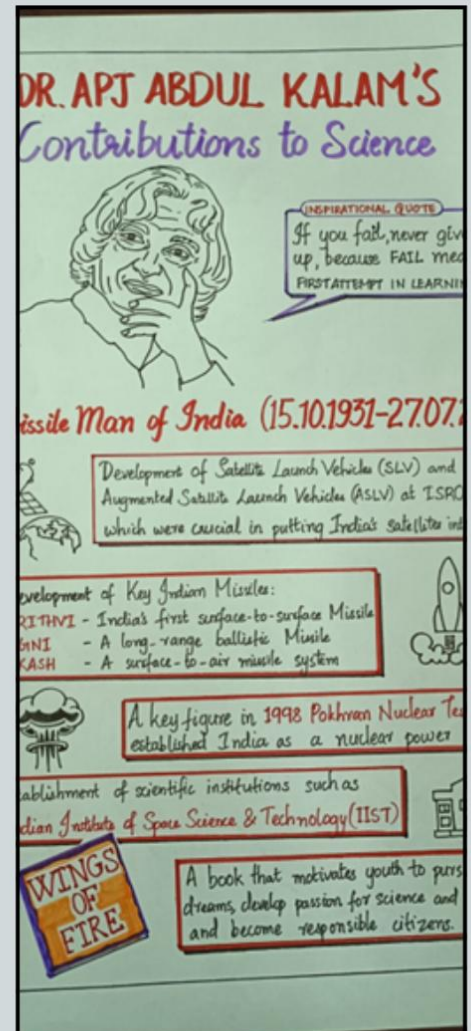 DR. APJ ABDUL KALAM'S
Contributions to Science
INSPIRATIONAL QUOTE
If you fail, never giv
up, because FAIL mea
FIRST ATTEMPT IN LEARNIN
issile Man of India (15.10.1931-27.07.2
Development of Satellite Launch Vehicles (SLV) and
Augmented Satellite Launch Vehicles (ASLV) at ISRO
which were crucial in putting India's satellites int
evelopment of Key Indian Missiles:
RITHVI - India's first surface-to-surface Missile
GNI - A long-range ballistic Missile
KASH - A surface-to-air missile system
A key figure in 1998 Pokhran Nuclear Tes
established India as a nuclear power
ablishment of scientific institutions such as
dian Institute of Space Science & Technology (IIST)
WINGS
OF
FIRE
A book that motivates youth to purs
dreams, develop passion for science and
and become responsible citizens.